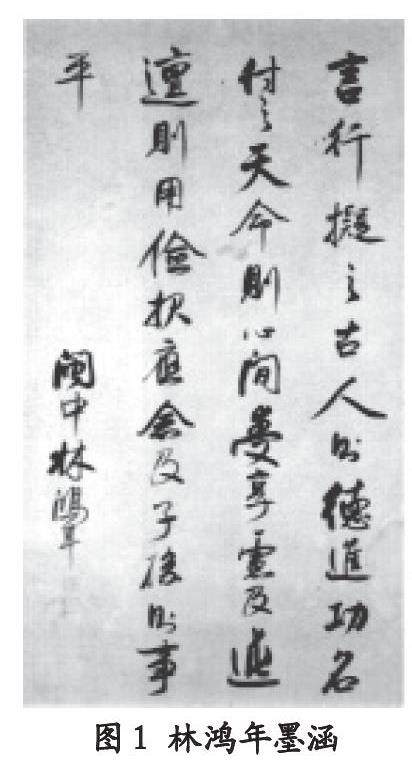 言行擬之古人則德進功名
付之天命則心閒受享慮及迍
邅則用儉报應念及子孫則事
平
閩中林鴻年
图1 林鸿年墨涵